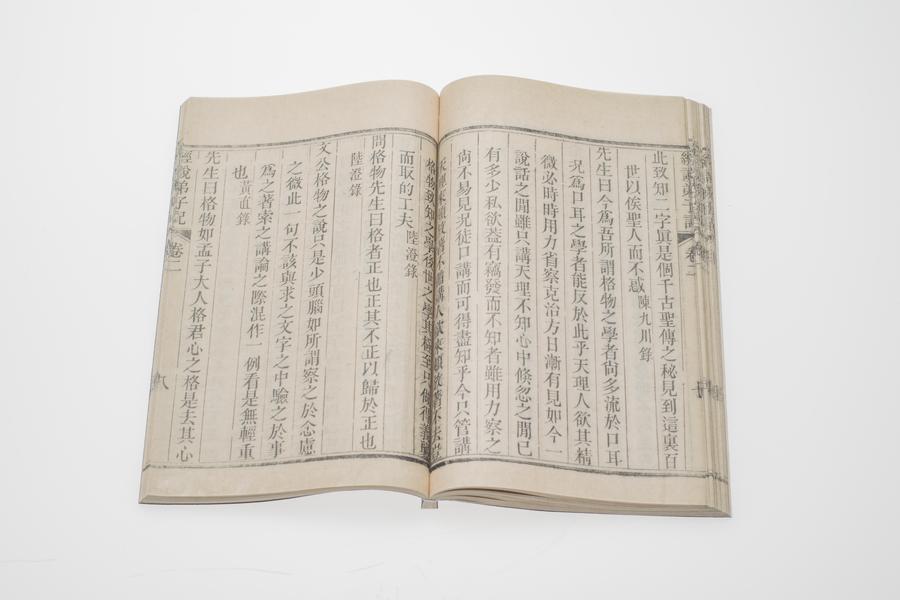 此致知二字眞是個千古聖傳之秘見到這裏百
世以俟聖人而不惑 陳九川錄
先生曰今爲吾所謂格物之學者尙多流於口耳
況爲口耳之學者能反於此乎天理人欲其精
微必時時用力省察克治方日漸有見如今一
說話之閒雖只講天理不知心中倏忽之閒已
有多少私欲葢有竊發而不知者雖用力察之
尙不易見況徒口講而可得盡知乎今只管講
天理來頓放著不循講人欲來頓放著不去豈
格物致知之學後世之學其極至只做得義襲
而取的工夫 陸澄錄
問格物先生曰格者正也正其不正以歸於正也
陸澄錄
文公格物之說只是少頭腦如所謂察之於念慮
之微此一句不該與求之文字之中驗之於事
爲之著索之講論之際混作一例看是無輕重
也 黃直錄
先生曰格物如孟子大人格君心之格是去其心
經說弟子記 卷二 八